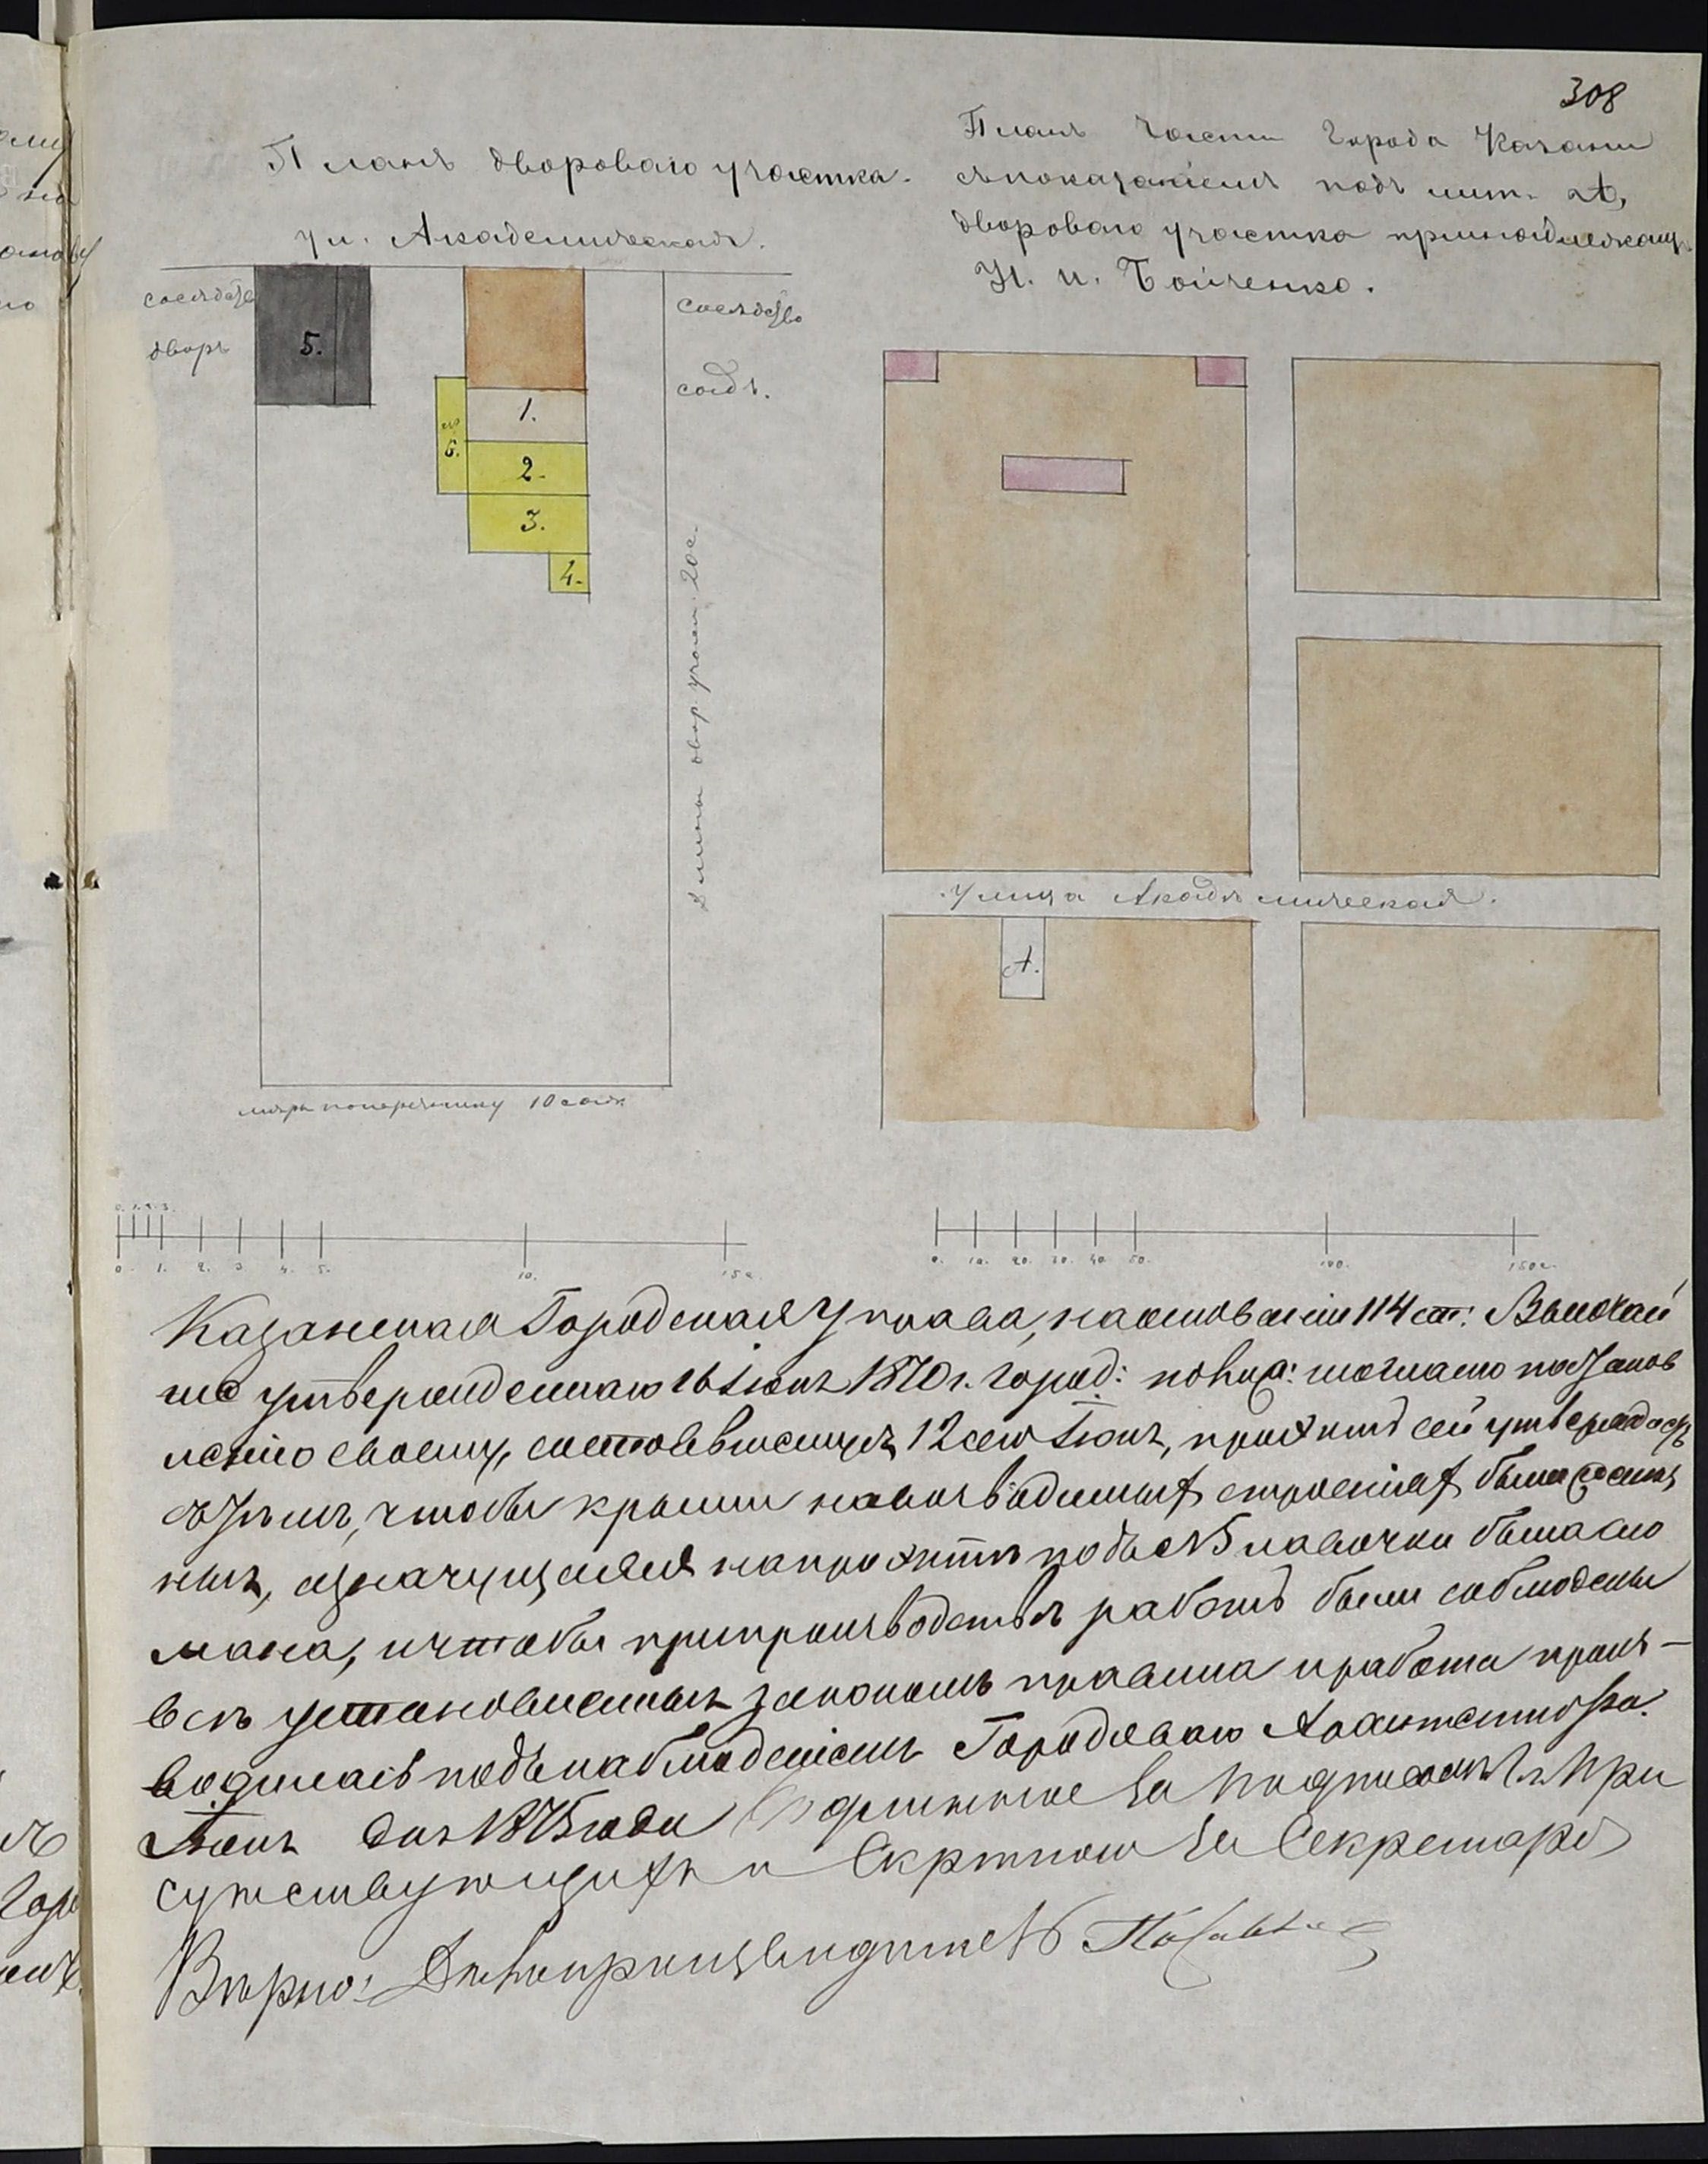 308
Планъ двороваго участка.
ул. Академическая.
сосѣдств
дворъ
5.
№
6.
1.
2.
3.
4.
сосѣдство
садъ.
Длины двор участ. 20 с.
мѣры поперечнику 10 саж.
Планъ части Города Казани
съ показаніемъ подъ лит. А,
двороваго участка принадлежащ.
И. Бойченко.
Улица Академическая.
А.
0. 1. 2. 3.
0. 1. 2. 3. 4. 5. 10. 15 с.
0. 10. 20. 30. 40. 50. 100. 150 с.
Казанская Городская Управа, на основаніи 114 ст: Высочай
ше утвержденнаго 16 Іюня 1870 г. город: полож: согласно постанов
ленію своему, состоявшемуся 12 сего Іюня, проэктъ сей утверждаетъ
съ тѣмъ, чтобы крыши на возводимыхъ строеніяхъ были
ныя, значущаяся на проэктѣ подъ №5 лавочка была сло
мана, и чтобы при производствѣ работъ были соблюдены
всѣ установленныя закономъ правила и работа произ-
водилась подъ наблюденіемъ Городоваго Архитектора.
Іюня дня 1875 года Подлинное за подписомъ Г.г. При
сутствующихъ и Скрѣпою За Секретаря
Вѣрно: Дѣлопроизводитель